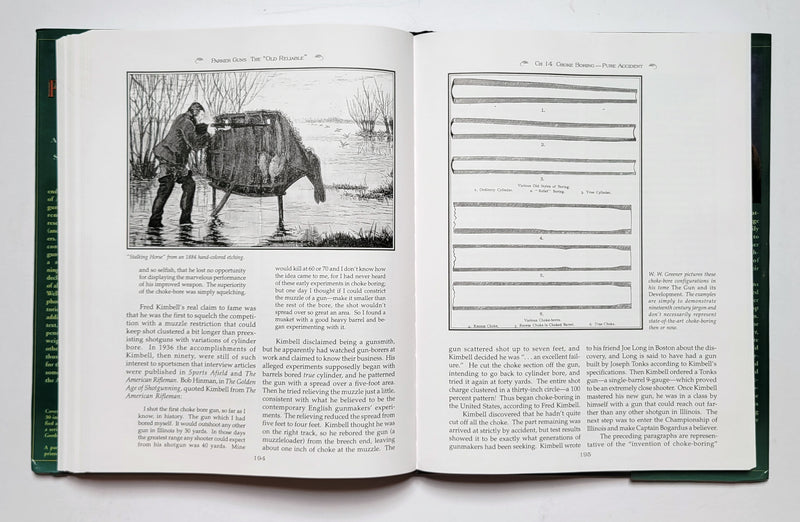 Parker Guns The "Old Reliable"
"Stalking Horse" from an 1884 hand-colored etching.
and so selfish, that he lost no opportunity
for displaying the marvelous performance
of his improved weapon. The superiority
of the choke-bore was simply squelching.
Fred Kimbell's real claim to fame was
that he was the first to squelch the competi-
tion with a muzzle restriction that could
keep shot clustered a bit longer than preex-
isting shotguns with variations of cylinder
bore. In 1936 the accomplishments of
Kimbell, then ninety, were still of such
interest to sportsmen that interview articles
were published in Sports Afield and The
American Rifleman. Bob Hinman, in The Golden
Age of Shotgunning, quoted Kimbell from The
American Rifleman:
I shot the first choke bore gun, so far as I
know, in history. The gun which I had
bored myself. It would outshoot any other
gun in Illinois by 30 yards. In those days
the greatest range any shooter could expect
from his shotgun was 40 yards. Mine
would kill at 60 or 70 and I don't know how
the idea came to me, for I had never heard
of these early experiments in choke boring;
but one day I thought if I could constrict
the muzzle of a gun—make it smaller than
the rest of the bore, the shot wouldn't
spread over so great an area. So I found a
musket with a good heavy barrel and be-
gan experimenting with it.
Kimbell disclaimed being a gunsmith,
but he apparently had watched gun-borers at
work and claimed to know their business. His
alleged experiments supposedly began with
barrels bored true cylinder, and he patterned
the gun with a spread over a five-foot area.
Then he tried relieving the muzzle just a little,
consistent with what he believed to be the
contemporary English gunmakers' experi-
ments. The relieving reduced the spread from
five feet to four feet. Kimbell thought he was
on the right track, so he rebored the gun (a
muzzleloader) from the breech end, leaving
about one inch of choke at the muzzle. The
194
Ch 14 Choke Boring—Pure Accident
1.
2.
3.
Various Old Styles of Boring.
1. Ordinary Cylinder. 2. "Relief" Boring. 3. True Cylinder.
4.
5.
6.
Various Choke-bores.
4. Recess Choke. 5. Recess Choke in Choked Barrel. 6. True Choke.
W. W. Greener pictures these
choke-bore configurations in
his tome The Gun and its
Development. The examples
are simply to demonstrate
nineteenth century jargon and
don't necessarily represent
state-of-the-art choke-boring
then or now.
gun scattered shot up to seven feet, and
Kimbell decided he was ". . . an excellent fail-
ure." He cut the choke section off the gun,
intending to go back to cylinder bore, and
tried it again at forty yards. The entire shot
charge clustered in a thirty-inch circle—a 100
percent pattern! Thus began choke-boring in
the United States, according to Fred Kimbell.
Kimbell discovered that he hadn't quite
cut off all the choke. The part remaining was
arrived at strictly by accident, but test results
showed it to be exactly what generations of
gunmakers had been seeking. Kimbell wrote
to his friend Joe Long in Boston about the dis-
covery, and Long is said to have had a gun
built by Joseph Tonks according to Kimbell's
specifications. Then Kimbell ordered a Tonks
gun—a single-barrel 9-gauge—which proved
to be an extremely close shooter. Once Kimbell
mastered his new gun, he was in a class by
himself with a gun that could reach out far-
ther than any other shotgun in Illinois. The
next step was to enter the Championship of
Illinois and make Captain Bogardus a believer.
The preceding paragraphs are represen-
tative of the "invention of choke-boring"
195